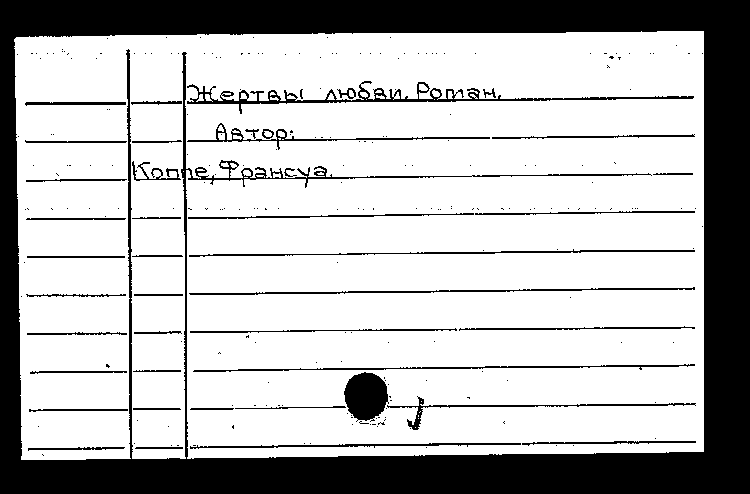 Жертвы любви. Роман.
Автор:
Коппе, Франсуа.